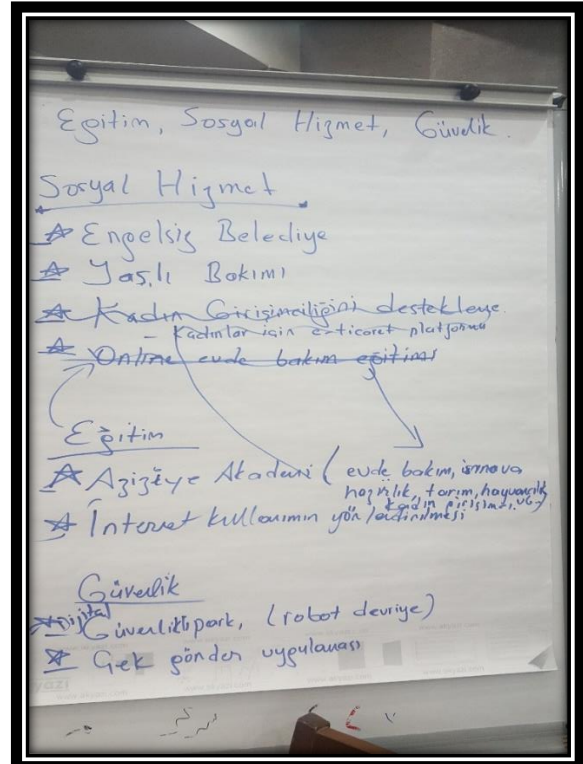 Egitim, Sosyal Hizmet, Güvelik.
Sosyal Hizmet
☆ Engelsiz Belediye
☆ Yaşlı Bakımı
☆ Kadın Girişimciliğini destekleye
- Kadınlar için e-ticaret platformu
☆ Online evde bakım eğitimi
Eğitim
☆ Aziziye Akademi (evde bakım,
hazırlık, tarım, hayvancılık
kadın girişimci. vb.)
☆ İnternet kullanımın yönlendirilmesi
Güvenlik
☆ Dijital Güvenlikli park, (robot devriye)
☆ Çek gönder uygulaması